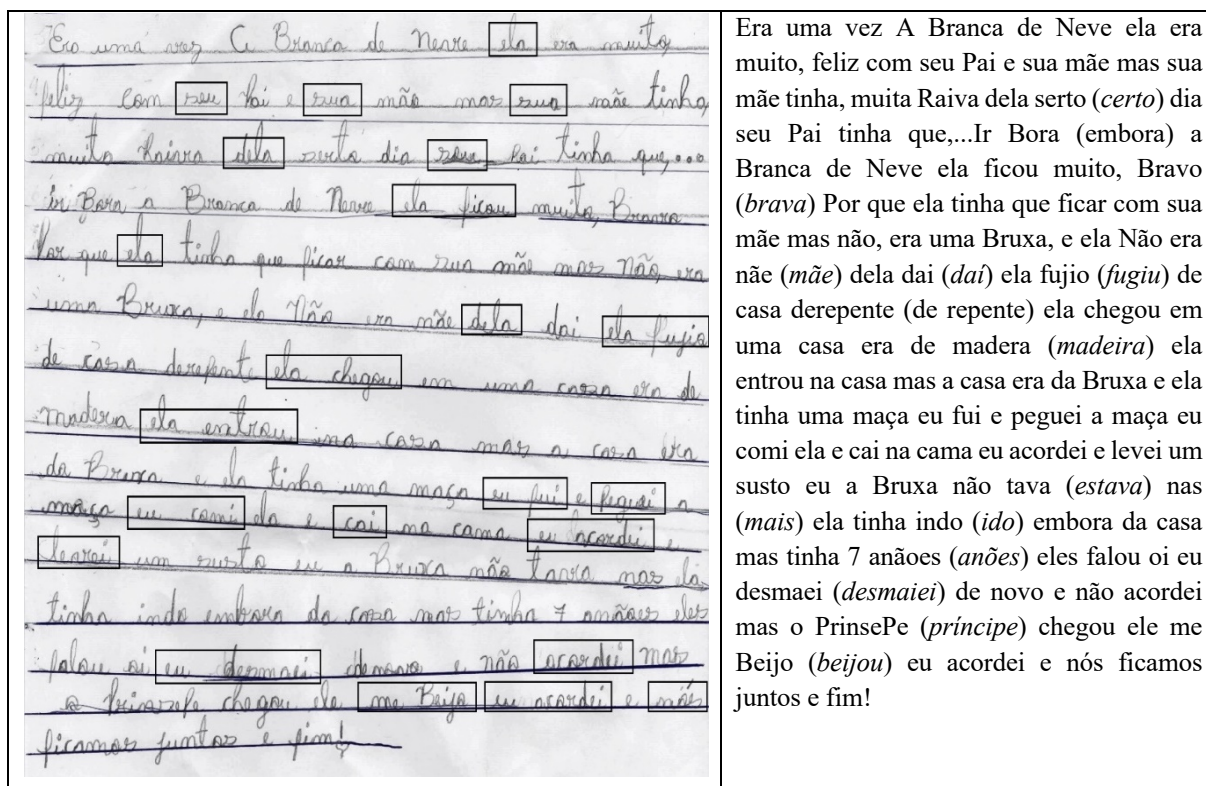 Era uma vez A Branca de Neve ela era muito,
feliz com seu Pai e sua mãe mas sua mãe tinha,
muita Raiva dela serto dia seu Pai tinha que,...
ir Bora a Branca de Neve ela ficou muito, Bravo
Por que ela tinha que ficar com sua mãe mas não, era
uma Bruxa, e ela Não era mãe dela dai ela fujio
de casa derepente ela chegou em uma casa era de
madera ela entrou na casa mas a casa era
da Bruxa e ela tinha uma maça eu fui e peguei a
maça eu comi ela e cai na cama eu acordei e
levei um susto eu a Bruxa não tava nas ela
tinha indo embora da casa mas tinha 7 anãoes eles
falou oi eu desmaei denovo e não acordei mas
o PrinsePe chegou ele me Beijo eu acordei e nós
ficamos juntos e fim!
Era uma vez A Branca de Neve ela era
muito, feliz com seu Pai e sua mãe mas sua
mãe tinha, muita Raiva dela serto (certo) dia
seu Pai tinha que,...Ir Bora (embora) a
Branca de Neve ela ficou muito, Bravo
(brava) Por que ela tinha que ficar com sua
mãe mas não, era uma Bruxa, e ela Não era
nãe (mãe) dela dai (daí) ela fujio (fugiu) de
casa derepente (de repente) ela chegou em
uma casa era de madera (madeira) ela
entrou na casa mas a casa era da Bruxa e ela
tinha uma maça eu fui e peguei a maça eu
comi ela e cai na cama eu acordei e levei um
susto eu a Bruxa não tava (estava) nas
(mais) ela tinha indo (ido) embora da casa
mas tinha 7 anãoes (anões) eles falou oi eu
desmaei (desmaiei) de novo e não acordei
mas o PrinsePe (príncipe) chegou ele me
Beijo (beijou) eu acordei e nós ficamos
juntos e fim!